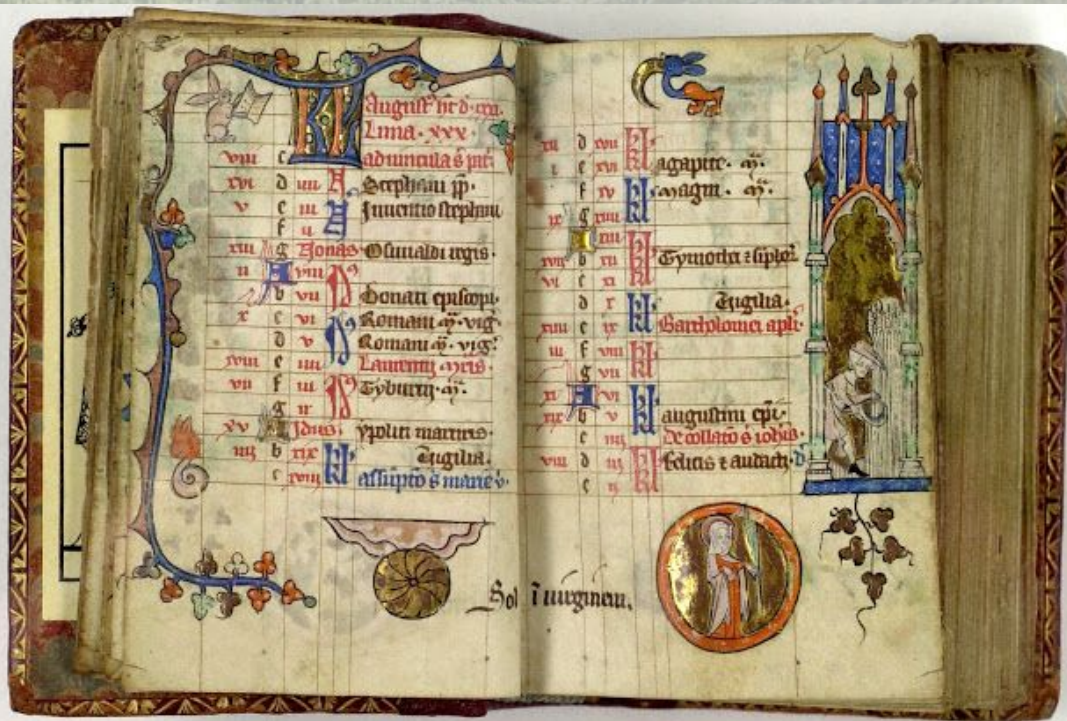 KL August' ht d. xxxi.
Luna. xxx.
viii c ad vincula s pet'
xvi d iiii N Stephani pp.
v e iii Inventio stephani
f ii N
xiii g Nonas Osuualdi regis.
ii A viii Id
b vii Donati episcopi.
x c vi Romani m. vig'
d v Id Romani m. vig'
xviii e iiii Laurentij mris.
vii f iii Id Tyburtij. m.
g ii
xv A Idus. ypoliti martiris.
iiij b xix Vigilia.
c xviii kl assu'ptio s marie v.
xii d xvii kl
i e xvi agapite. m.
f xv kl magni. m.
ix g xiiii
A xiii
xvii b xii kl Tymothei
vi c xi
d x kl Vigilia.
xiiii e ix Bartholomei apli.
iii f viii kl
g vii
xi A vi kl
xix b v augustini epi.
c iiij De collatio s iohis.
viii d iij kl felicis & audacti.
e ij
Sol i' virginem.